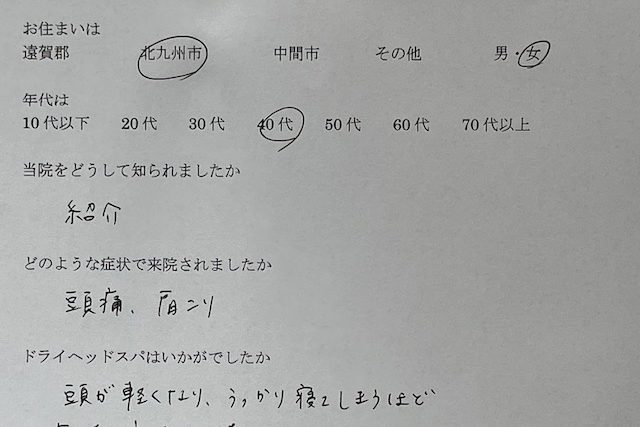 お住まいは
遠賀郡 北九州市 中間市 その他 男・女
年代は
10代以下 20代 30代 40代 50代 60代 70代以上
当院をどうして知られましたか
紹介
どのような症状で来院されましたか
頭痛、肩こり
ドライヘッドスパはいかがでしたか
頭が軽くなり、うっかり寝てしまうほど